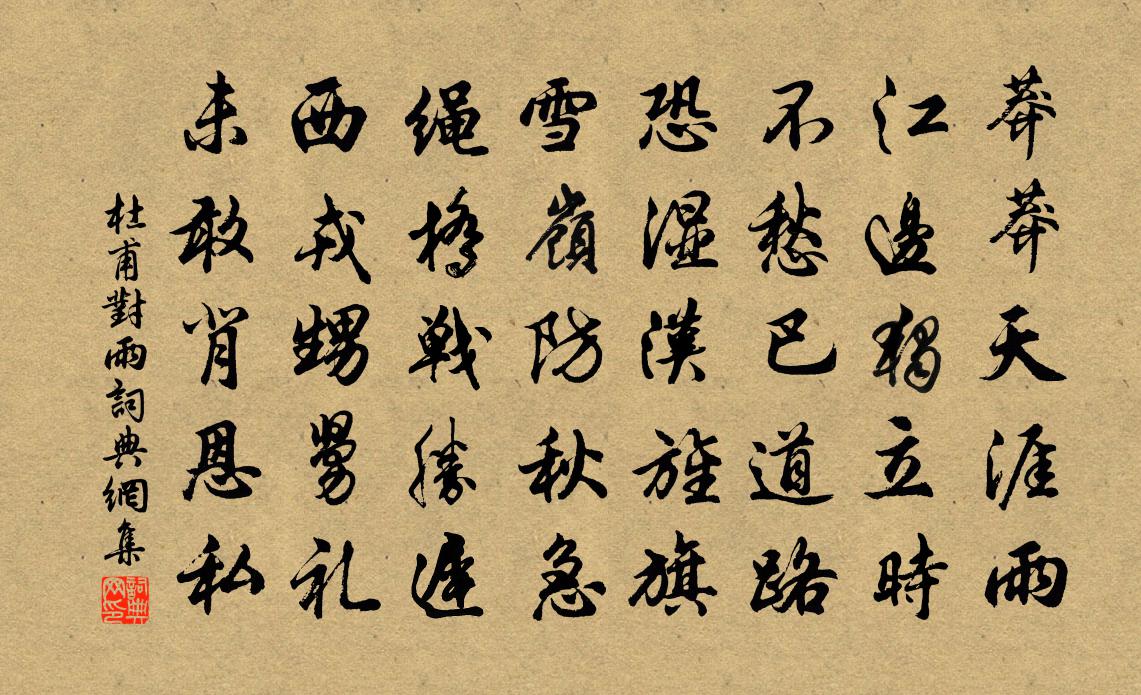 莽莽天涯雨
江邊獨立時
不愁巴道路
恐湿漢旌旗
雪嶺防秋急
繩橋戰勝遲
西戎甥舅礼
未敢背恩私
杜甫對雨詞典網集
詞典网印